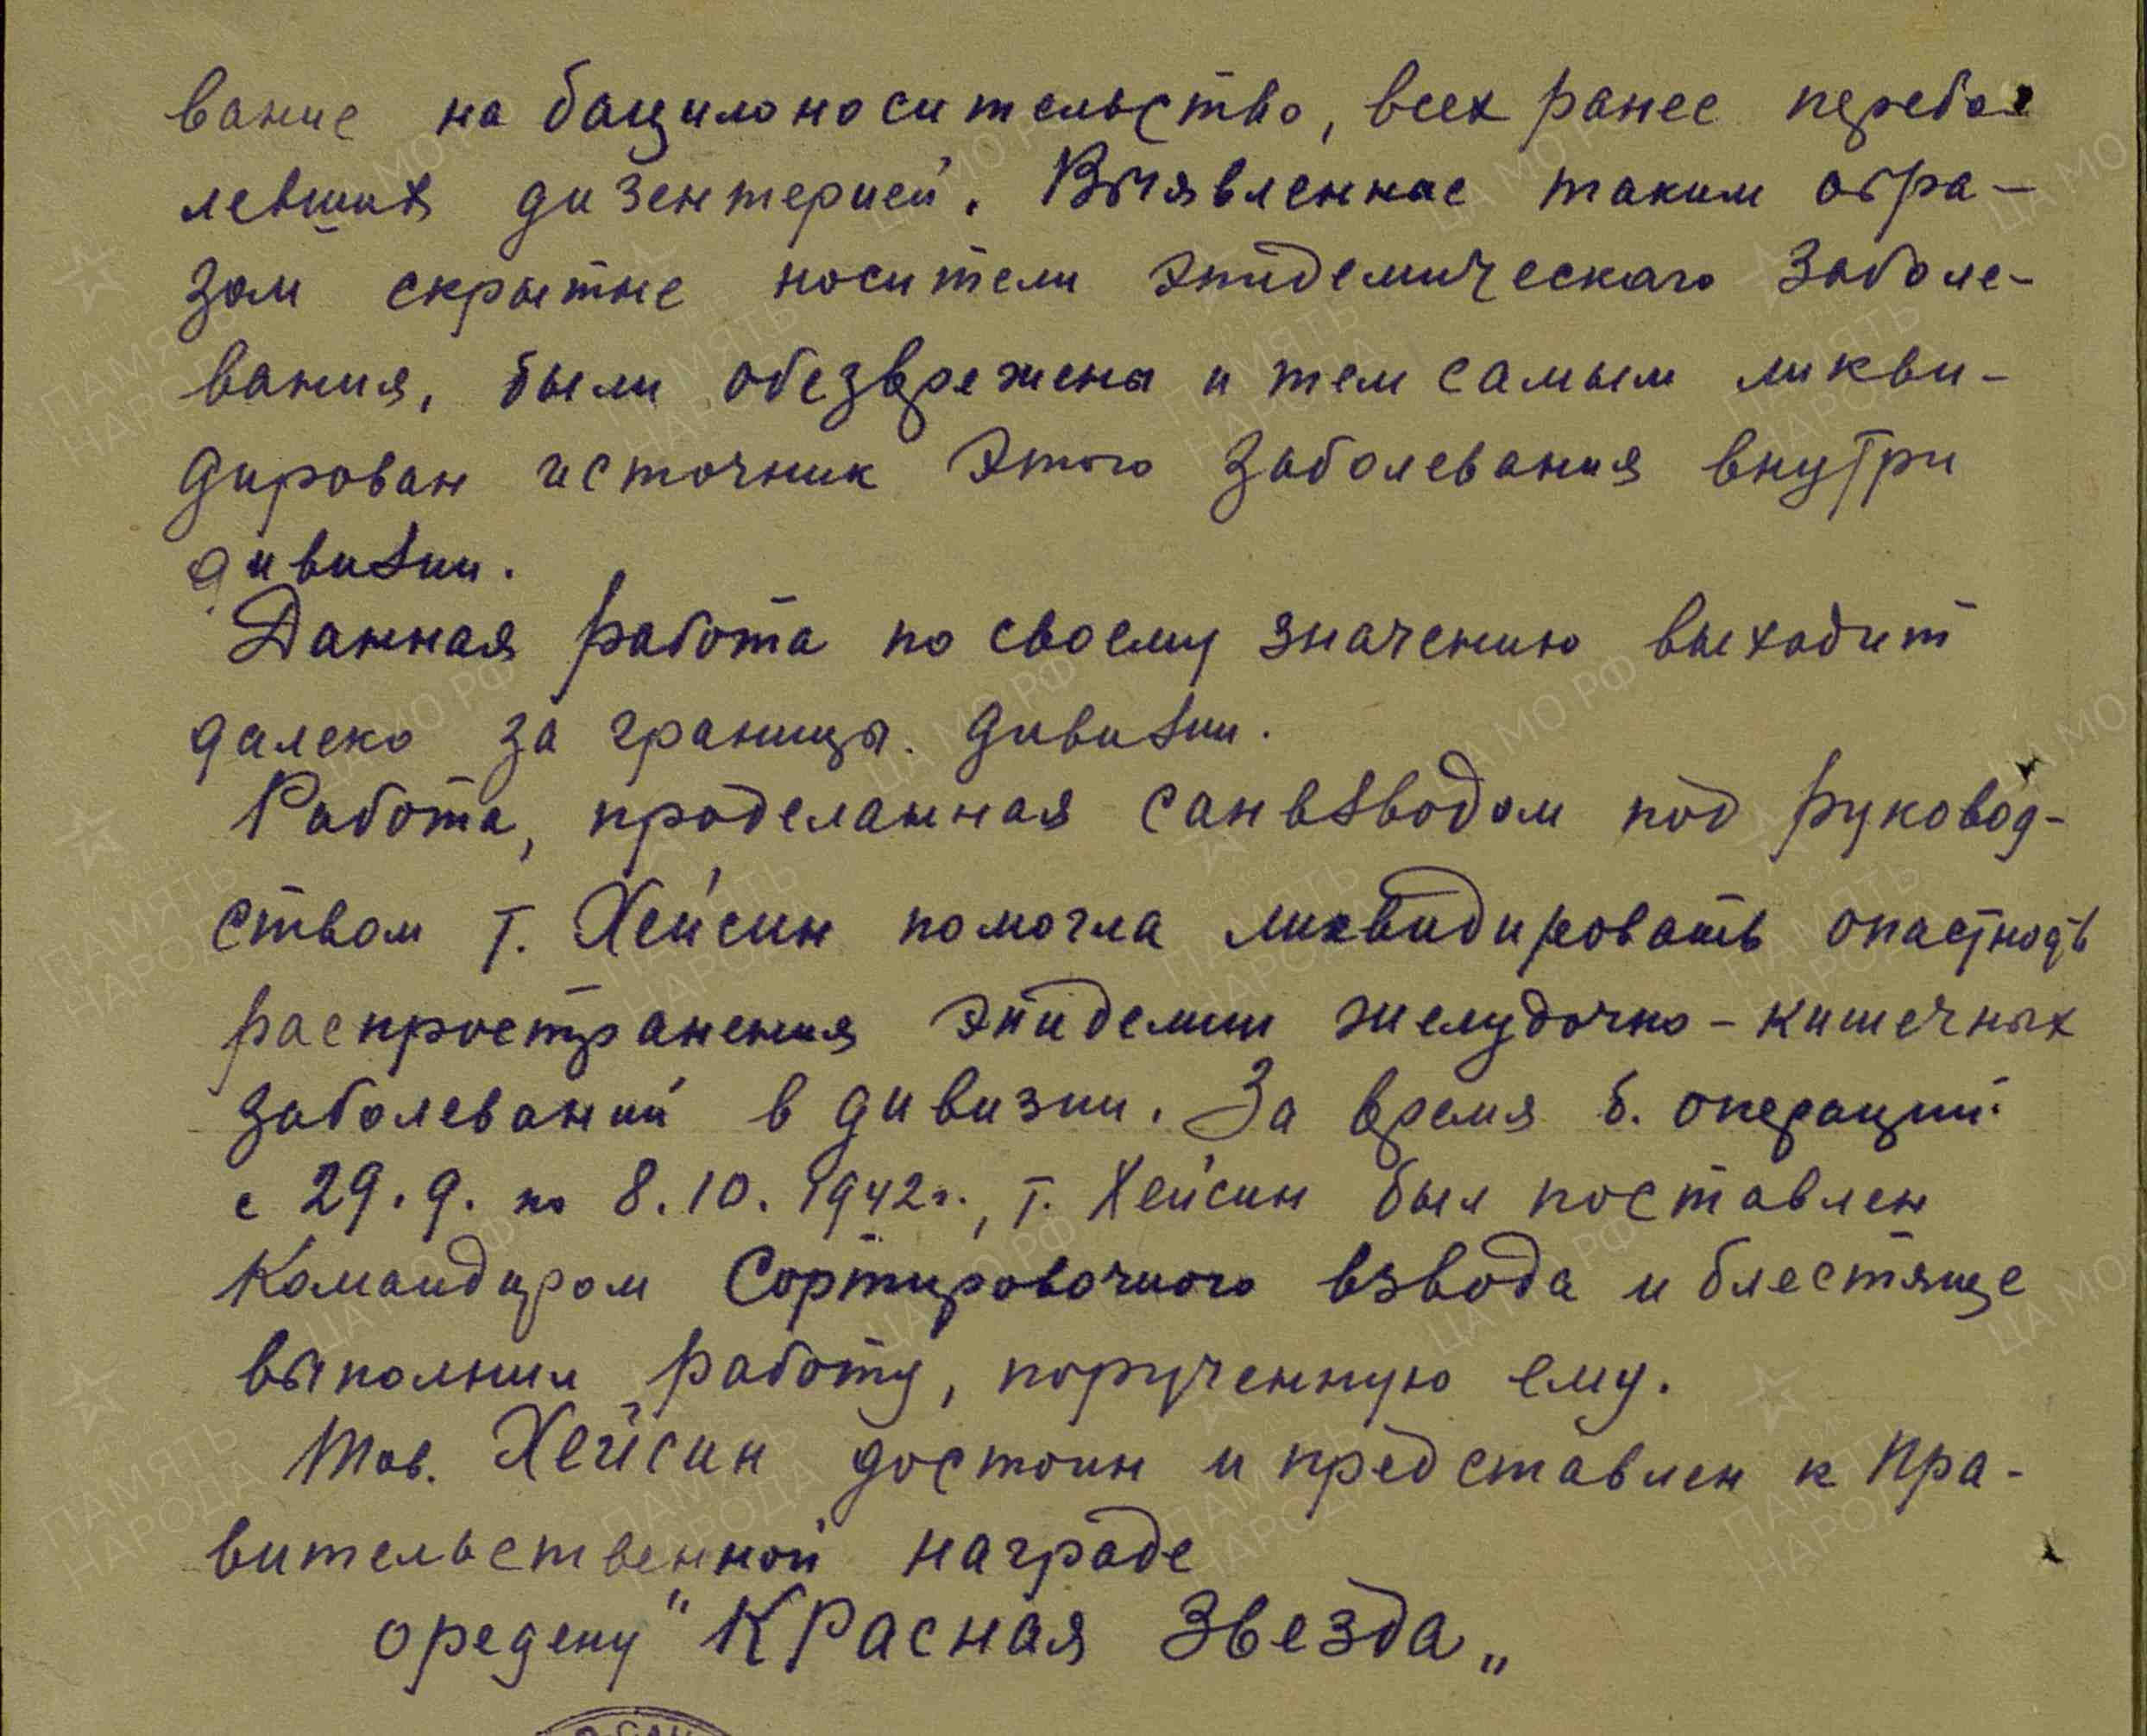 вание на бацилоносительство, всех ранее перебо-
левших дизентерией. Выявленные таким обра-
зом скрытые носители эпидемического заболе-
вания, были обезврежены и тем самым ликви-
дирован источник этого заболевания внутри
дивизии.
Данная работа по своему значению выходит
далеко за границы. дивизии.
Работа, проделанная санвзводом под руковод-
ством т. Хейсин помогла ликвидировать опастность
распространения эпидемии желудочно-кишечных
заболеваний в дивизии. За время б. операций
с 29.9. по 8.10.1942г., т. Хейсин был поставлен
командиром Сортировочного взвода и блестяще
выполнил работу, порученную ему.
Тов. Хейсин достоин и представлен к пра-
вительственной награде
оредену "Красная Звезда"
ЦА МО РФ
ПАМЯТЬ
НАРОДА